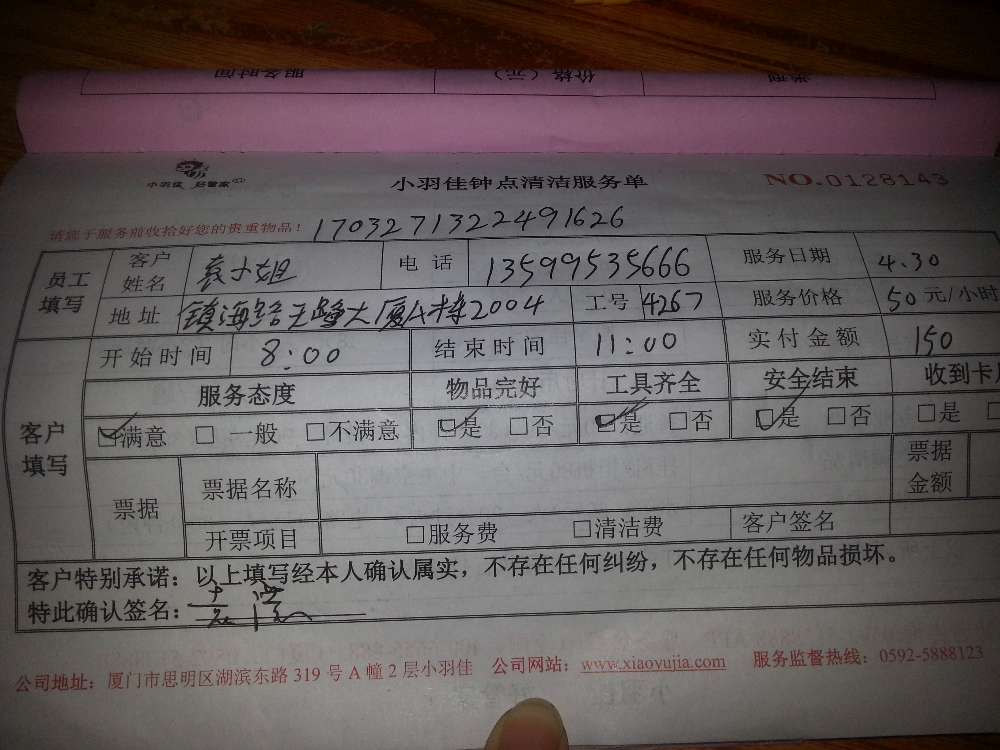 服务时间 价格（元） 类型
小羽佳 好管家
小羽佳钟点清洁服务单
NO.0128143
请您于服务前收拾好您的贵重物品！
17032713222491626
员工填写 客户姓名 袁小姐 电话 13599535666 服务日期 4.30
地址 镇海路 大厦A 2004 工号 4267 服务价格 50元/小时
开始时间 8:00 结束时间 11:00 实付金额 150
服务态度 物品完好 工具齐全 安全结束 收到卡
客户填写 ☑满意 □一般 □不满意 ☑是 □否 ☑是 □否 ☑是 □否 □是 □
票据 票据名称 票据金额
开票项目 □服务费 □清洁费 客户签名
客户特别承诺：以上填写经本人确认属实，不存在任何纠纷，不存在任何物品损坏。
特此确认签名：
公司地址：厦门市思明区湖滨东路 319 号 A 幢 2 层小羽佳 公司网站：www.xiaoyujia.com 服务监督热线：0592-5888123